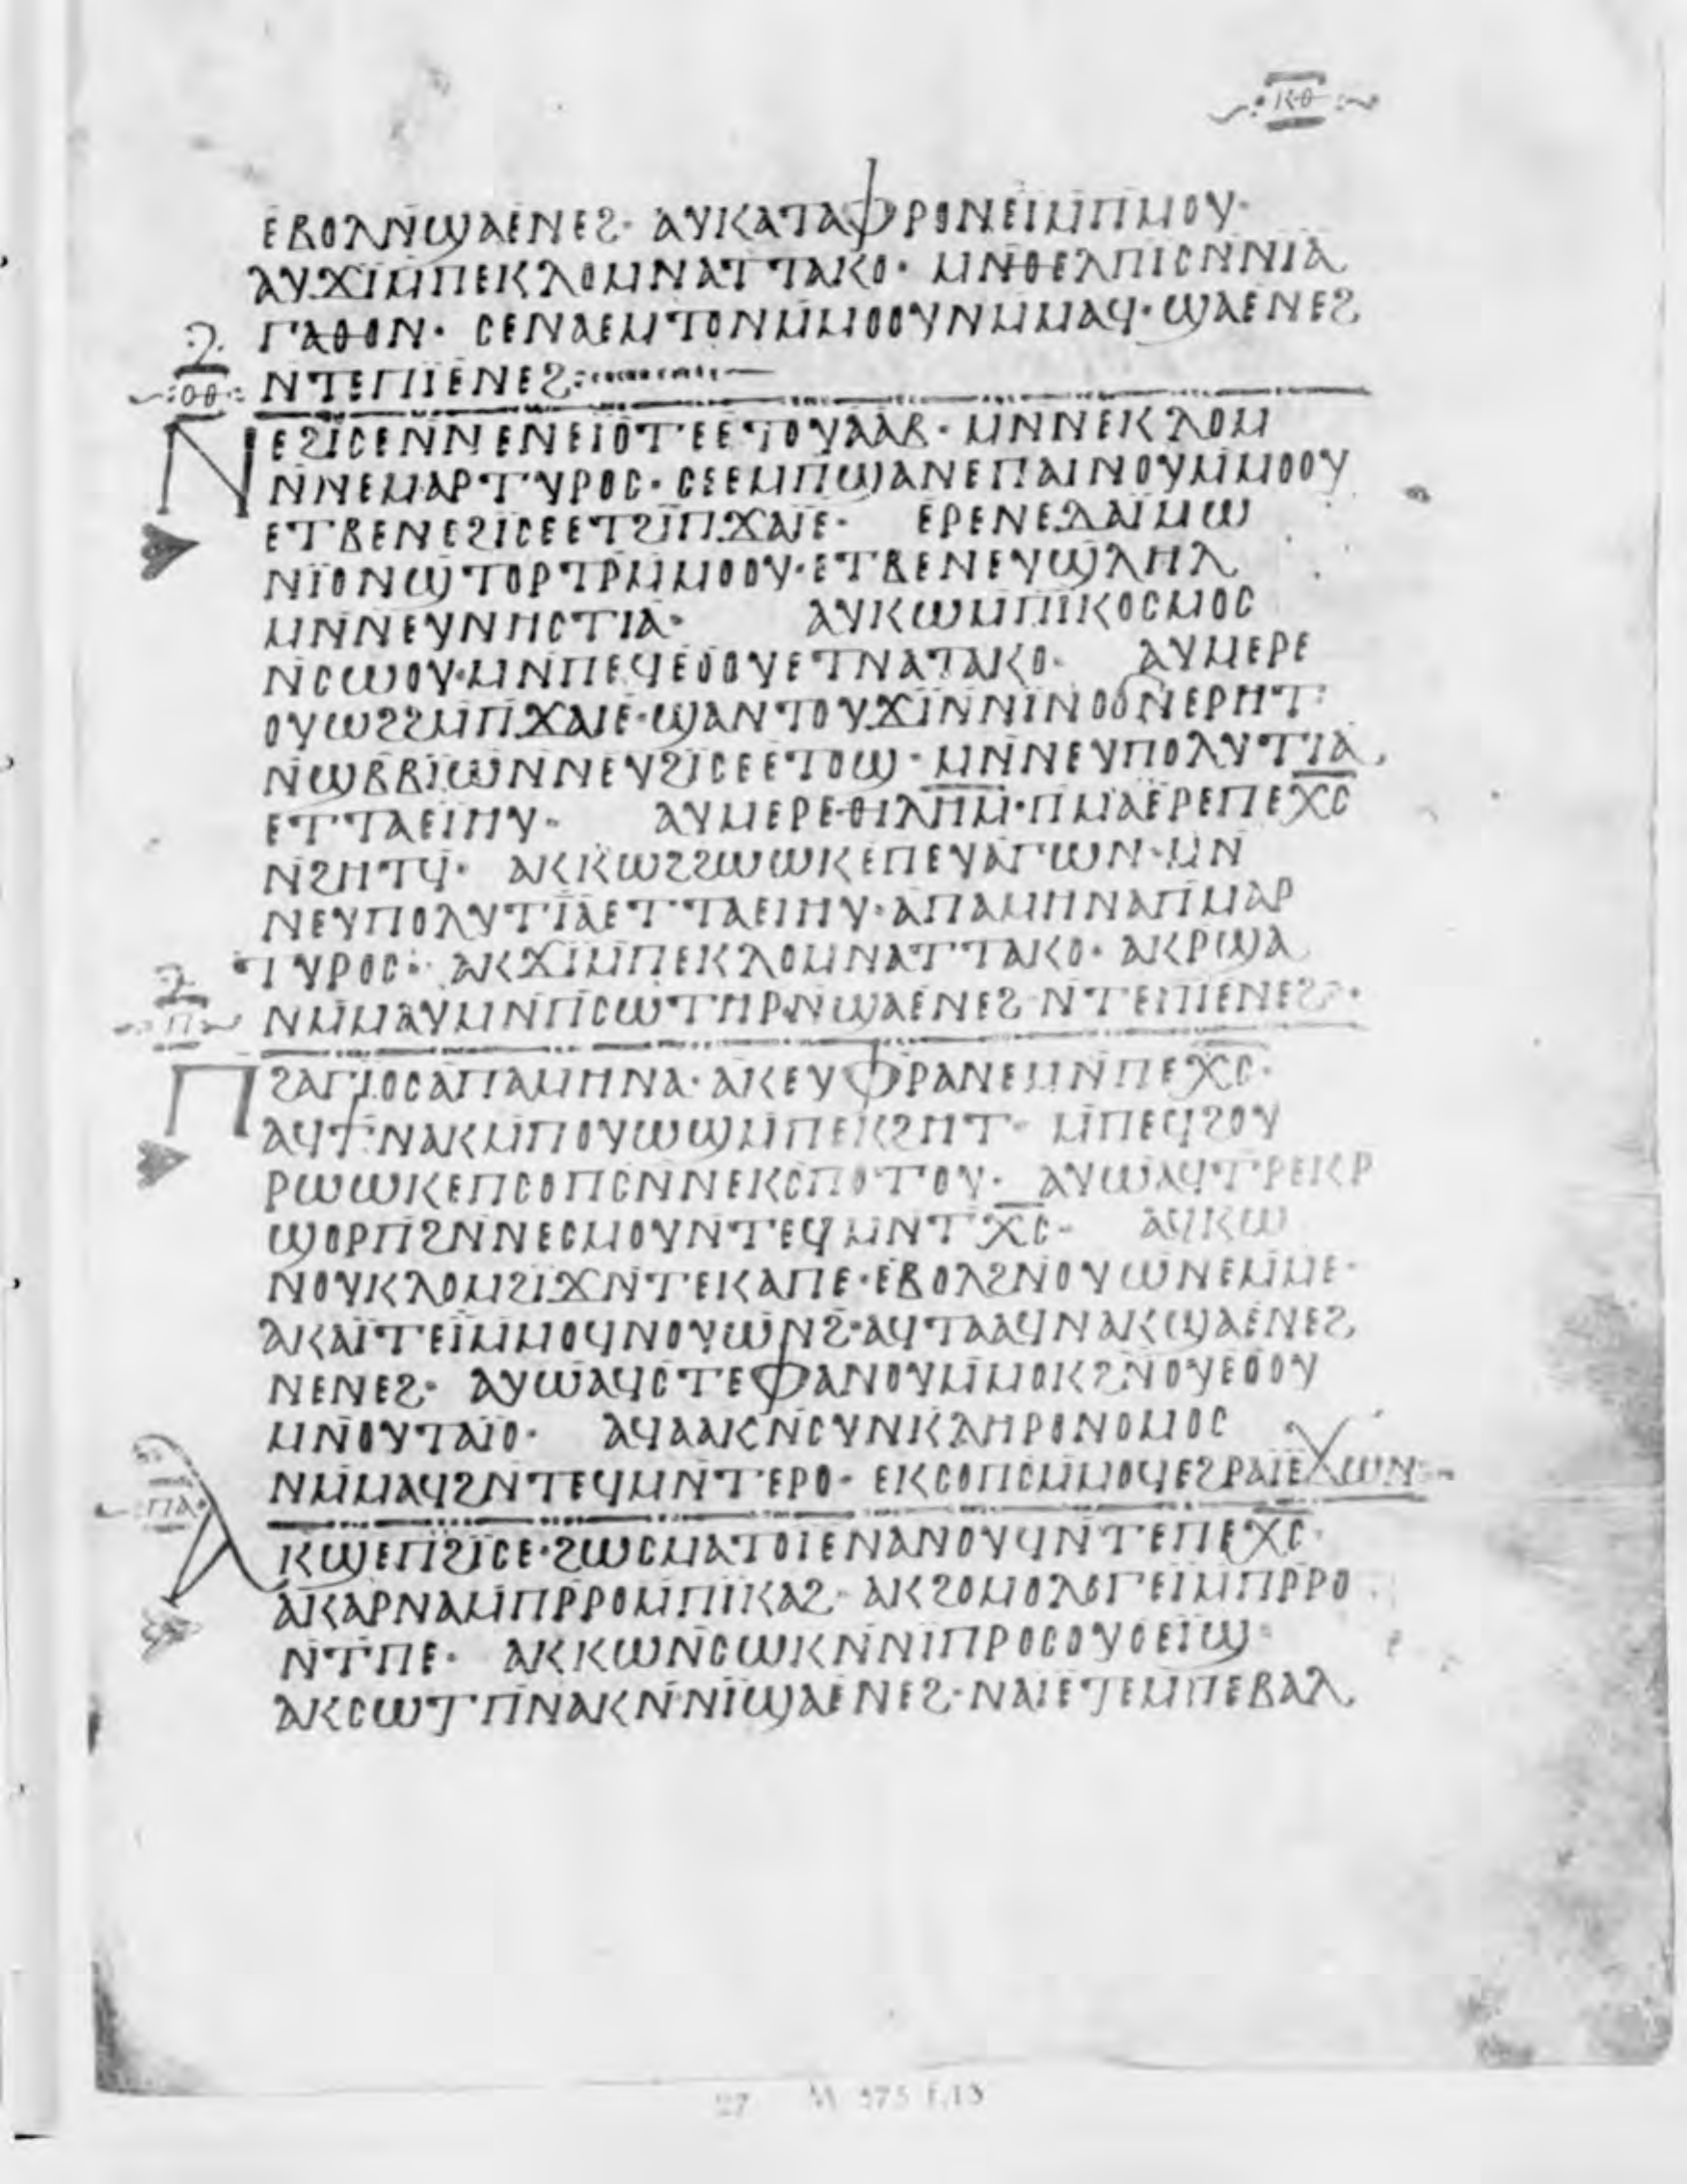 ⲕⲑ
ⲉⲃⲟⲗⲛ̄ϣⲁⲉ̀ⲛⲉϩ· ⲁⲩⲕⲁⲧⲁⲫⲣⲟⲛⲉⲓⲙ̄ⲡⲙⲟⲩ·
ⲁⲩϫⲓⲙ̄ⲡⲉⲕⲗⲟⲙⲛⲁⲧⲧⲁⲕⲟ· ⲙⲛ̄ⲑⲉⲗⲡⲓⲥⲛ̄ⲛⲓⲁ
ⲅⲁⲑⲟⲛ· ⲥⲉⲛⲁⲉⲙⲧⲟⲛⲙ̄ⲙⲟⲟⲩⲛⲙ̄ⲙⲁϥ· ϣⲁⲉ̀ⲛⲉϩ
ⲟⲑ
ⲛ̄ⲧⲉⲡⲓⲉ̀ⲛⲉϩ:
ⲛⲉϩⲓⲥⲉⲛ̄ⲛⲉⲛⲉⲓⲟⲧⲉⲉⲧⲟⲩⲁⲁⲃ· ⲙⲛ̄ⲛⲉⲕⲗⲟⲙ
ⲛ̄ⲛⲉⲙⲁⲣⲧⲩⲣⲟⲥ· ⲥⲉⲉⲙⲡϣⲁⲛⲉⲡⲁⲓⲛⲟⲩⲙ̄ⲙⲟⲟⲩ
ⲉⲧⲃⲉⲛⲉϩⲓⲥⲉⲉⲧϩⲓⲡ̄ϫⲁⲓⲉ· ⲉⲣⲉⲛⲉⲇⲁⲓⲙⲱ
ⲛⲓⲟⲛϣ̄ⲧⲟⲣⲧⲣ̄ⲙ̄ⲙⲟⲟⲩ· ⲉⲧⲃⲉⲛⲉⲩϣⲗⲏⲗ
ⲙⲛ̄ⲛⲉⲩⲛⲏⲥⲧⲓⲁ· ⲁⲩⲕⲱⲙ̄ⲡⲓⲕⲟⲥⲙⲟⲥ
ⲛ̄ⲥⲱⲟⲩ· ⲙⲛ̄ⲡⲉϥⲉⲟⲟⲩⲉⲧⲛⲁⲧⲁⲕⲟ· ⲁⲩⲙⲉⲣⲉ
ⲟⲩⲱϩϩⲙ̄ⲡ̄ϫⲁⲓⲉ· ϣⲁⲛⲧⲟⲩϫⲓⲛ̄ⲛⲓⲛⲟϭⲛ̄ⲉⲣⲏⲧ·
ⲛ̄ϣⲃⲃⲓⲱⲛ̄ⲛⲉⲩϩⲓⲥⲉⲉⲧⲟϣ· ⲙⲛ̄ⲛⲉⲩⲡⲟⲗⲩⲧⲓⲁ
ⲉⲧⲧⲁⲉⲓⲏⲩ· ⲁⲩⲙⲉⲣⲉⲑⲓⲗⲏ̄ⲙ̄· ⲡⲙⲁⲉ̀ⲣⲉⲡⲉⲭ̄ⲥ̄
ⲛ̄ϩⲏⲧϥ̄· ⲁⲕⲕⲱϩϩⲱⲱⲕⲉ̀ⲡⲉⲩⲁⲅⲱⲛ· ⲙⲛ̄
ⲛⲉⲩⲡⲟⲗⲩⲧⲓⲁⲉⲧⲧⲁⲉⲓⲏⲩ· ⲁⲡⲁⲙⲏⲛⲁⲡ̄ⲙⲁⲣ
ⲧⲩⲣⲟⲥ· ⲁⲕϫⲓⲙ̄ⲡⲉⲕⲗⲟⲙⲛⲁⲧⲧⲁⲕⲟ· ⲁⲕⲣ̄ϣⲁ
ⲡ
ⲛⲙ̄ⲙⲁⲩⲙⲛ̄ⲡⲥⲱⲧⲏⲣⲛ̄ϣⲁⲉ̀ⲛⲉϩ ⲛ̄ⲧⲉⲡⲓⲉⲛⲉϩ·
ⲡϩⲁⲅⲓⲟⲥⲁⲡⲁⲙⲏⲛⲁ· ⲁⲕⲉⲩⲫⲣⲁⲛⲉⲙⲛ̄ⲡⲉⲭ̄ⲥ̄·
ⲁϥϯⲛⲁⲕⲙ̄ⲡⲟⲩⲱϣⲙ̄ⲡⲉⲕϩⲏⲧ· ⲙ̄ⲡⲉϥϩⲟⲩ
ⲣⲱⲱⲕⲉⲡⲥⲟⲡⲥⲛ̄ⲛⲉⲕⲥⲡⲟⲧⲟⲩ· ⲁⲩⲱⲁϥⲧⲣⲉⲕⲣ
ϣⲟⲣⲡ̄ϩⲛ̄ⲛⲉⲥⲙⲟⲩⲛ̄ⲧⲉϥⲙⲛ̄ⲧⲭ̄ⲥ̄· ⲁϥⲕⲱ
ⲛⲟⲩⲕⲗⲟⲙϩⲓϫⲛ̄ⲧⲉⲕⲁⲡⲉ· ⲉⲃⲟⲗϩⲛ̄ⲟⲩⲱ̀ⲛⲉⲙ̄ⲙⲉ·
ⲁⲕⲁⲓⲧⲉⲓⲙ̄ⲙⲟϥⲛ̄ⲟⲩⲱⲛ̄ϩ· ⲁϥⲧⲁⲁϥⲛⲁⲕϣⲁⲉ̀ⲛⲉϩ
ⲛⲉⲛⲉϩ· ⲁⲩⲱⲁϥⲥⲧⲉⲫⲁⲛⲟⲩⲙ̄ⲙⲟⲕϩⲛ̄ⲟⲩⲉⲟⲟⲩ
ⲙⲛ̄ⲟⲩⲧⲁⲓⲟ· ⲁϥⲁⲁⲕⲛ̄ⲥⲩⲛⲕⲗⲏⲣⲟⲛⲟⲙⲟⲥ
ⲛⲙ̄ⲙⲁϥϩⲛ̄ⲧⲉϥⲙⲛ̄ⲧⲉⲣⲟ· ⲉⲕⲥⲟⲡⲥⲙ̄ⲙⲟϥⲉϩⲣⲁⲓⲉϫⲱⲛ·
ⲡⲁ
ⲁⲕϣⲉⲡϩⲓⲥⲉ· ϩⲱⲥⲙⲁⲧⲟⲓⲉⲛⲁⲛⲟⲩϥⲛ̄ⲧⲉⲡⲉⲭ̄ⲥ̄·
ⲁⲕⲁⲣⲛⲁⲙ̄ⲡⲣ̄ⲣⲟⲙ̄ⲡⲓⲕⲁϩ· ⲁⲕϩⲟⲙⲟⲗⲟⲅⲉⲓⲙ̄ⲡⲣ̄ⲣⲟ
ⲛ̄ⲧⲡⲉ· ⲁⲕⲕⲱⲛ̄ⲥⲱⲕⲛ̄ⲛⲓⲡⲣⲟⲥⲟⲩⲟⲉⲓϣ·
ⲁⲕⲥⲱⲧⲡ̄ⲛⲁⲕⲛ̄ⲛⲓϣⲁⲉ̀ⲛⲉϩ· ⲛⲁⲓⲉⲧⲉⲙ̄ⲡⲉⲃⲁⲗ
27 M 575 f.13